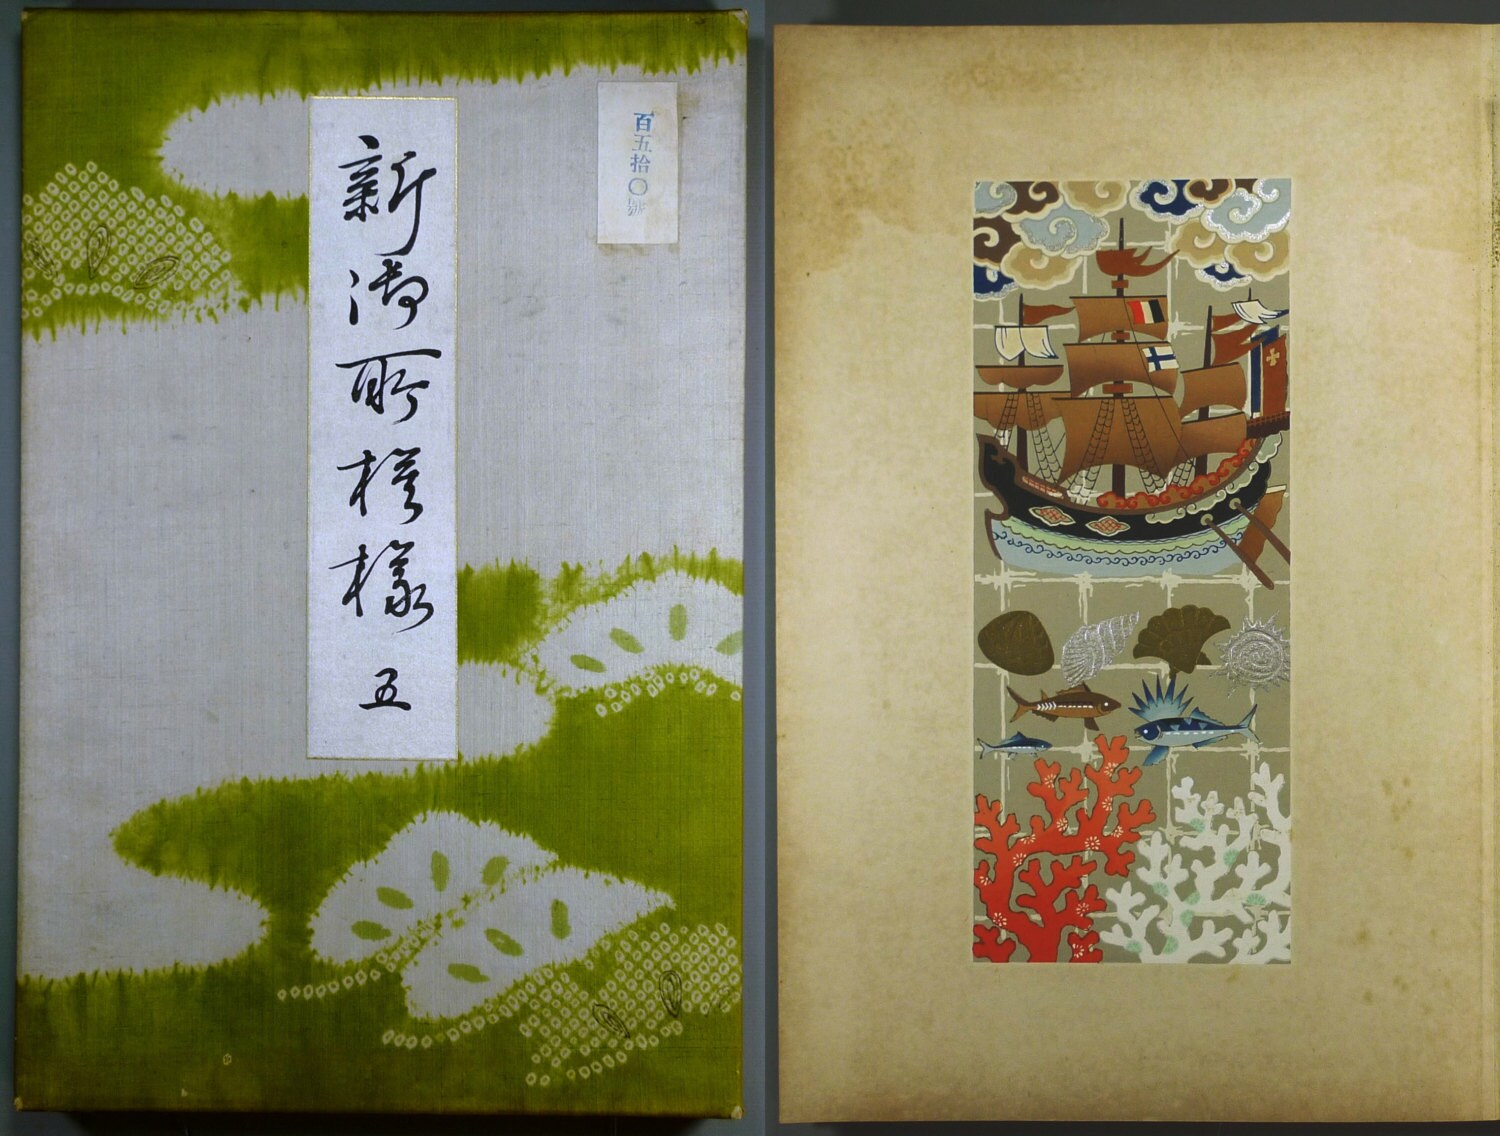 新御所模様 五
百五拾〇号